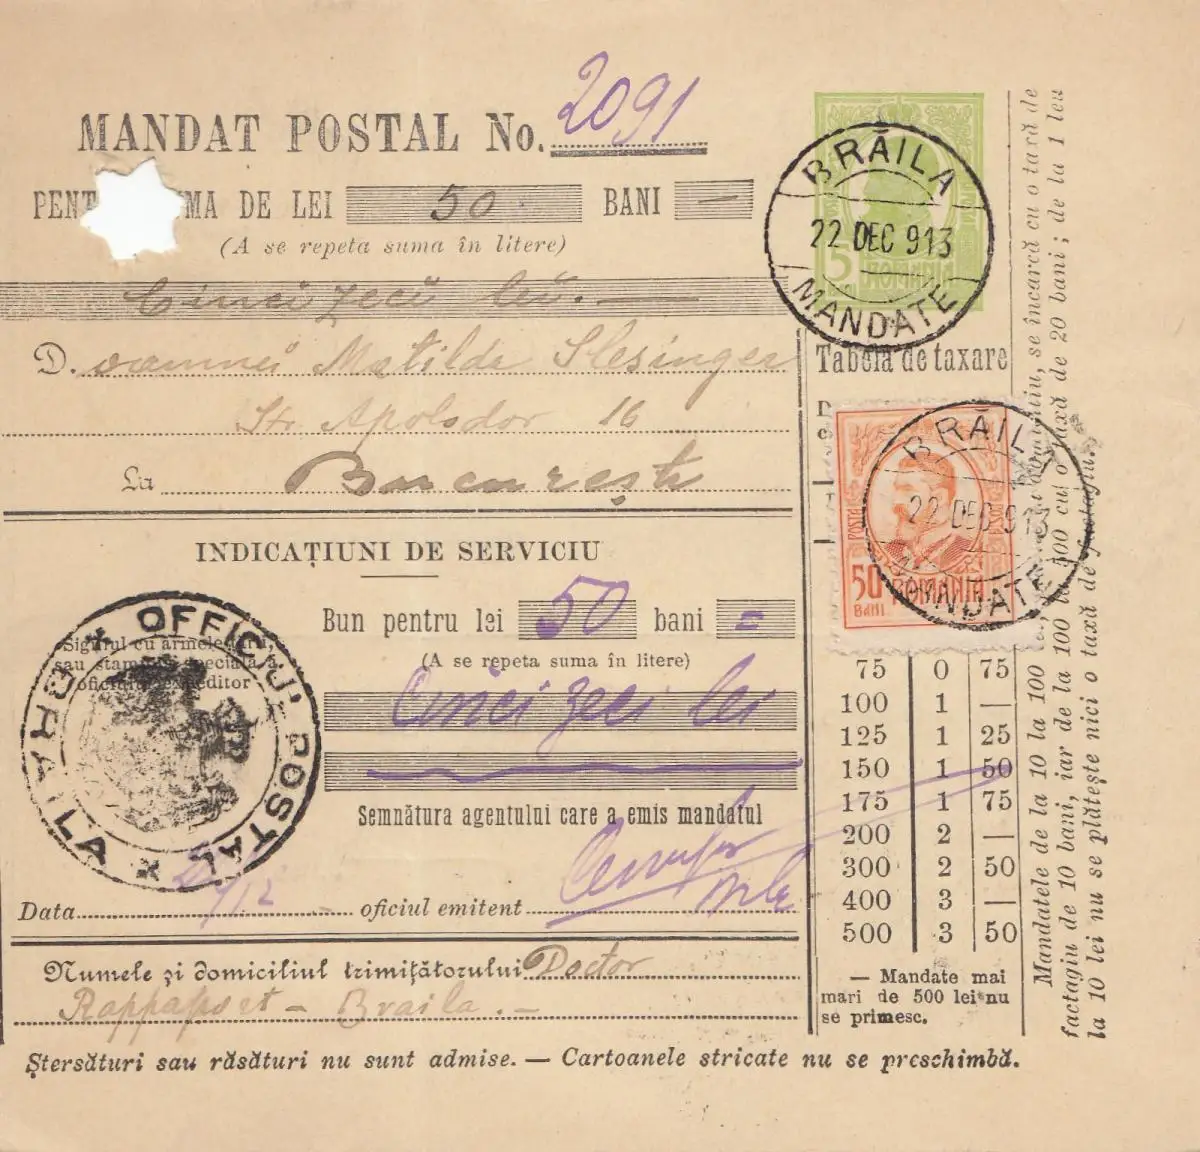 MANDAT POSTAL No. 2091
PENT MA DE LEI 50 BANI —
(A se repeta suma în litere)
Cinci zeci lei. —
D. oamnei Matilda Slesinger
Str. Apolodor 16
La Bucureşti
INDICAŢIUNI DE SERVICIU
Bun pentru lei 50 bani =
(A se repeta suma în litere)
Cinci zeci lei
Semnătura agentului care a emis mandatul
Sigiliul cu armele ţărei,
sau stampila specială a
oficiului expeditor
OFFICIUL POSTAL
BRAILA
Data 22/12 oficiul emitent
Numele şi domiciliul trimiţătorului Doctor
Rappaport – Braila. –
Ştersături sau răsături nu sunt admise. — Cartoanele stricate nu se preschimbă.
BRĂILA
22 DEC 913
MANDATE
5
ROMANIA
Tabela de taxare
BRĂILA
22 DEC 913
MANDATE
POSTA
50
BANI
ROMANIA
75 0 75
100 1 —
125 1 25
150 1 50
175 1 75
200 2 —
300 2 50
400 3 —
500 3 50
— Mandate mai
mari de 500 lei nu
se primesc.
Mandatele de la 10 la 100 se încarcă cu o taxă de
factagiu de 10 bani, iar de la 100 la 500 cu o taxă de 20 bani; de la 1 leu
la 10 lei nu se plăteşte nici o taxă de factagiu.